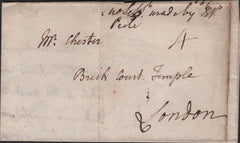 made by
Peele
Mr. Chester 4
Brick Court Temple
London